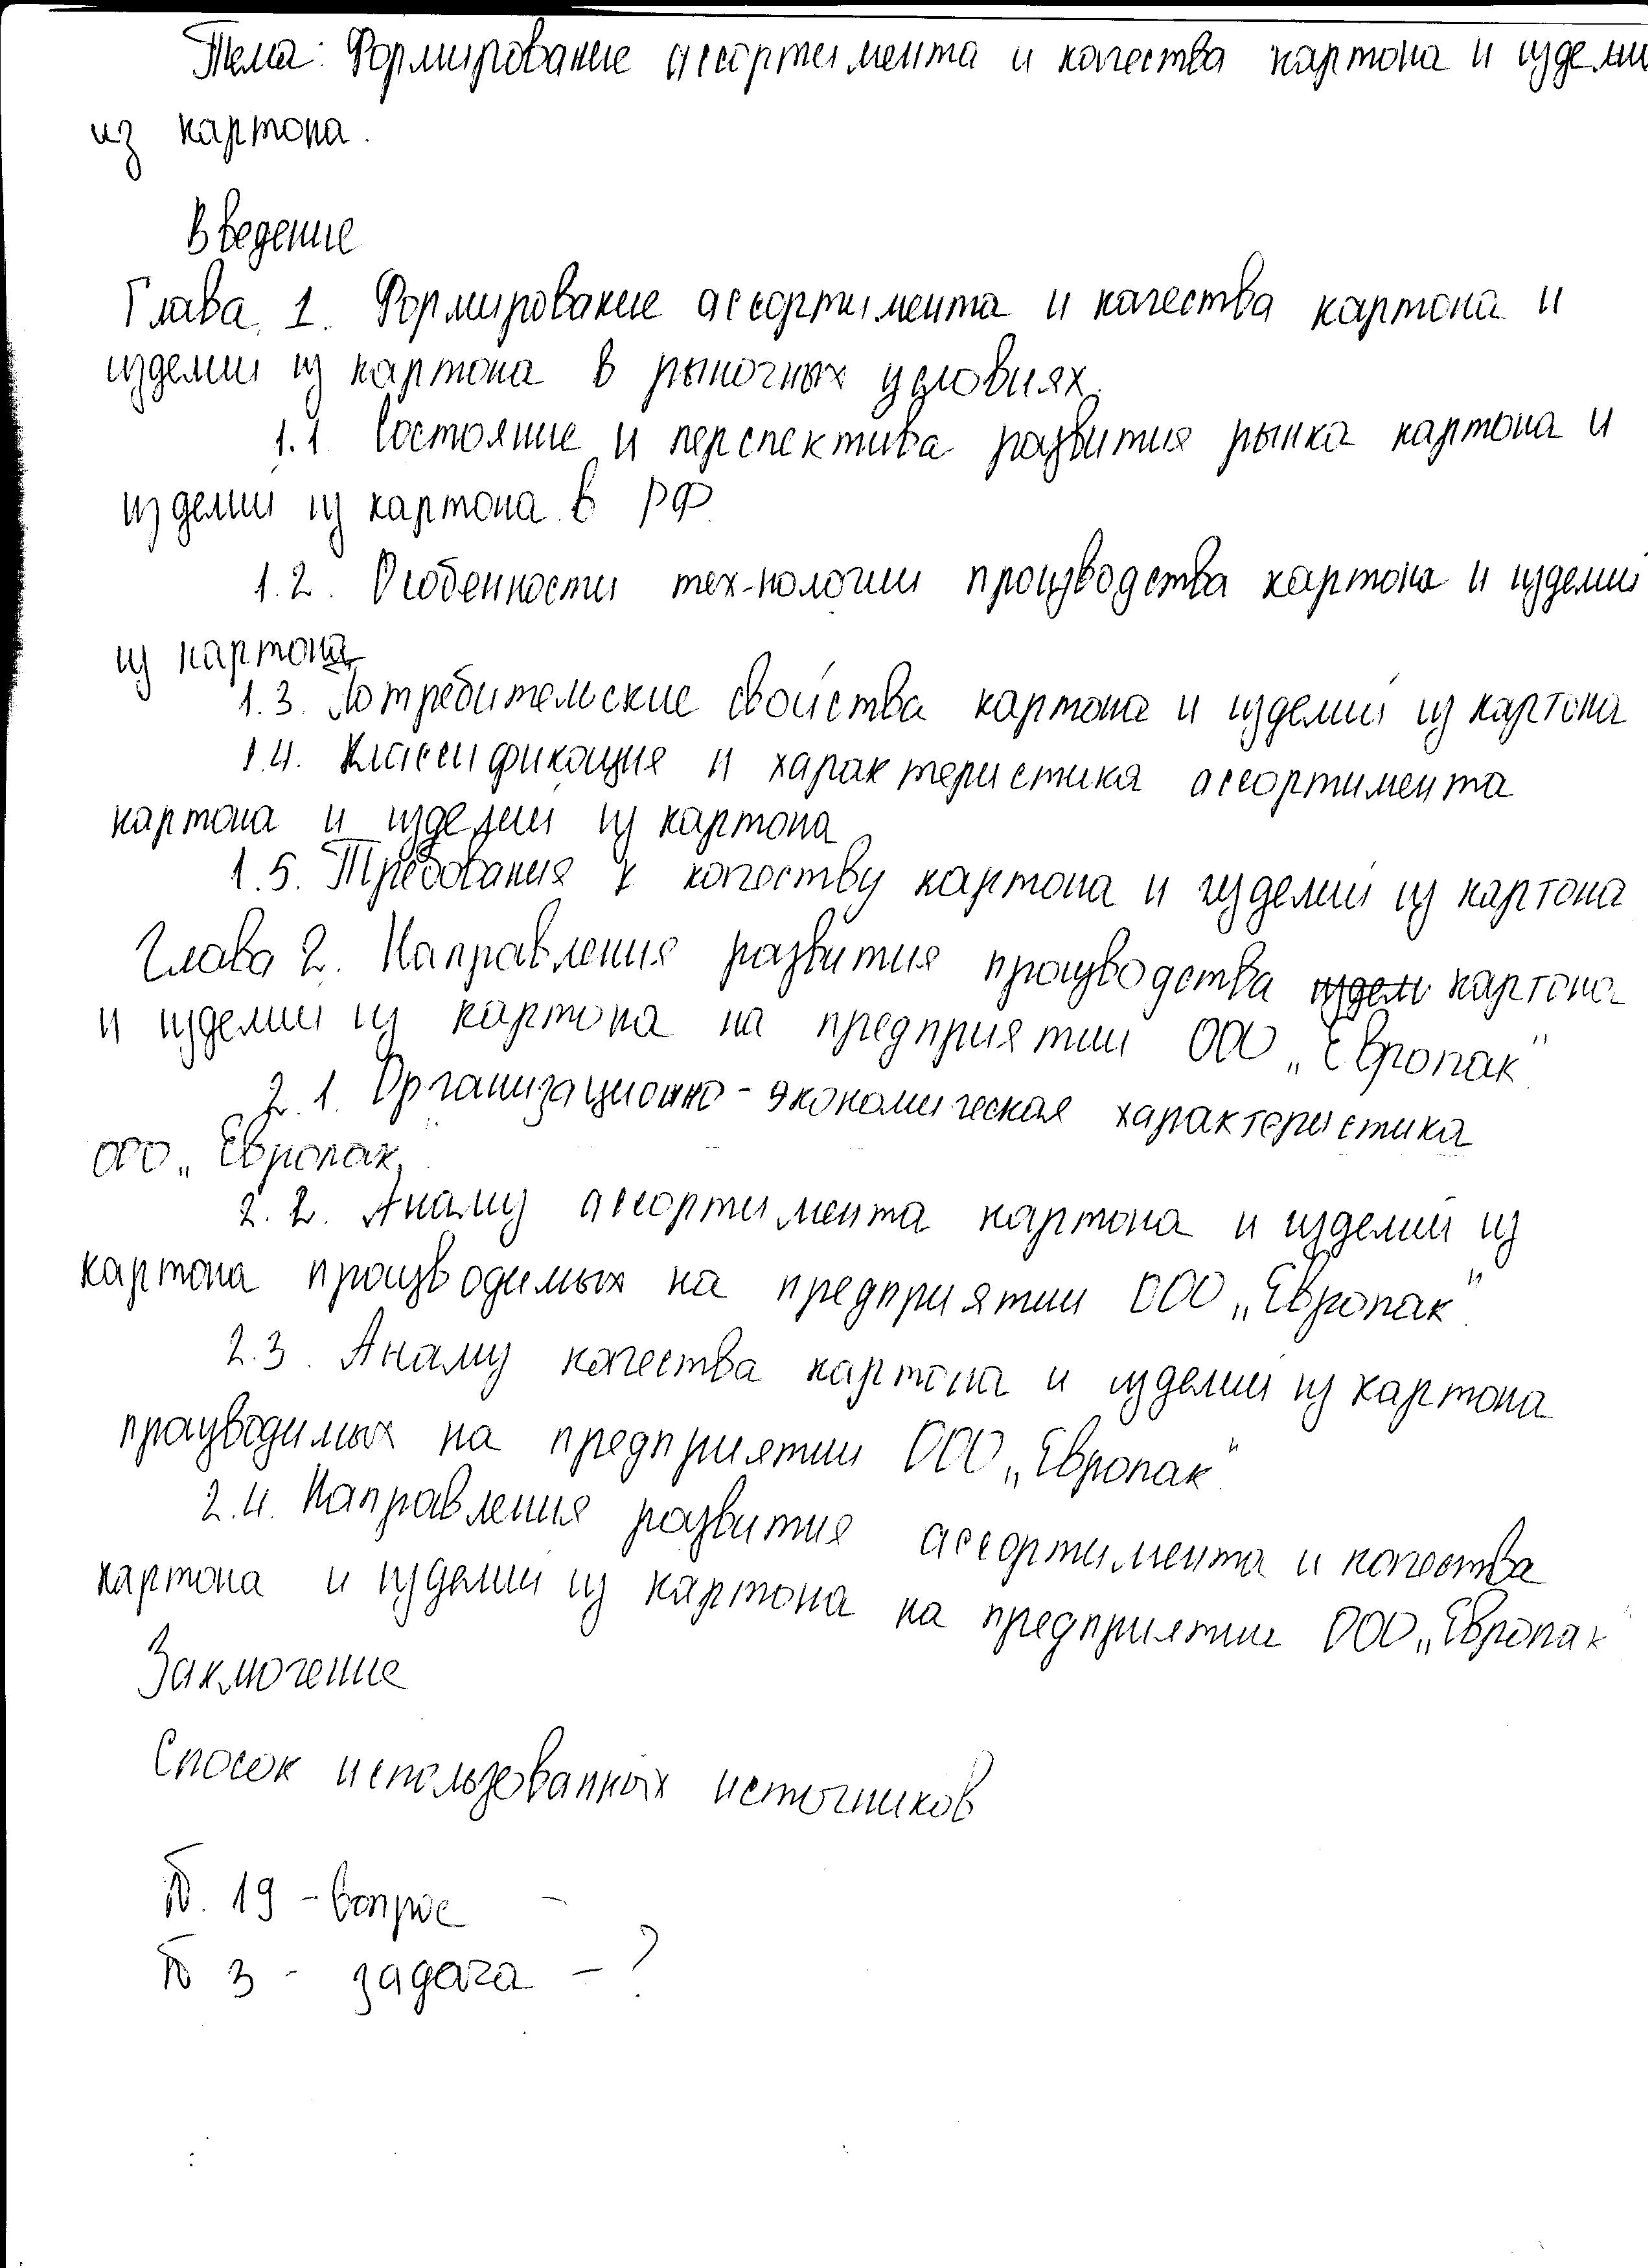 Тема: Формирование ассортимента и качества картона и издели
из картона.
Введение
Глава 1. Формирование ассортимента и качества картона и
изделий из картона в рыночных условиях.
1.1 Состояние и перспектива развития рынка картона и
изделий из картона в РФ
1.2. Особенности тех-нологии производства картона и изделий
из картона
1.3. Потребительские свойства картона и изделий из картона
1.4. Классификация и характеристика ассортимента
картона и изделий из картона
1.5. Требования к качеству картона и изделий из картона
Глава 2. Направления развития производства издели картона
и изделий из картона на предприятии ООО „Европак"
2.1. Организационно-экономическая характеристика
ООО „Европак"
2.2. Анализ ассортимента картона и изделий из
картона производимых на предприятии ООО „Европак".
2.3. Анализ качества картона и изделий из картона
производимых на предприятии ООО „Европак"
2.4. Направления развития ассортимента и качества
картона и изделий из картона на предприятии ООО „Европак"
Заключение
Список использованных источников
Б. 19 - вопрос -
Б 3 - задача - ?